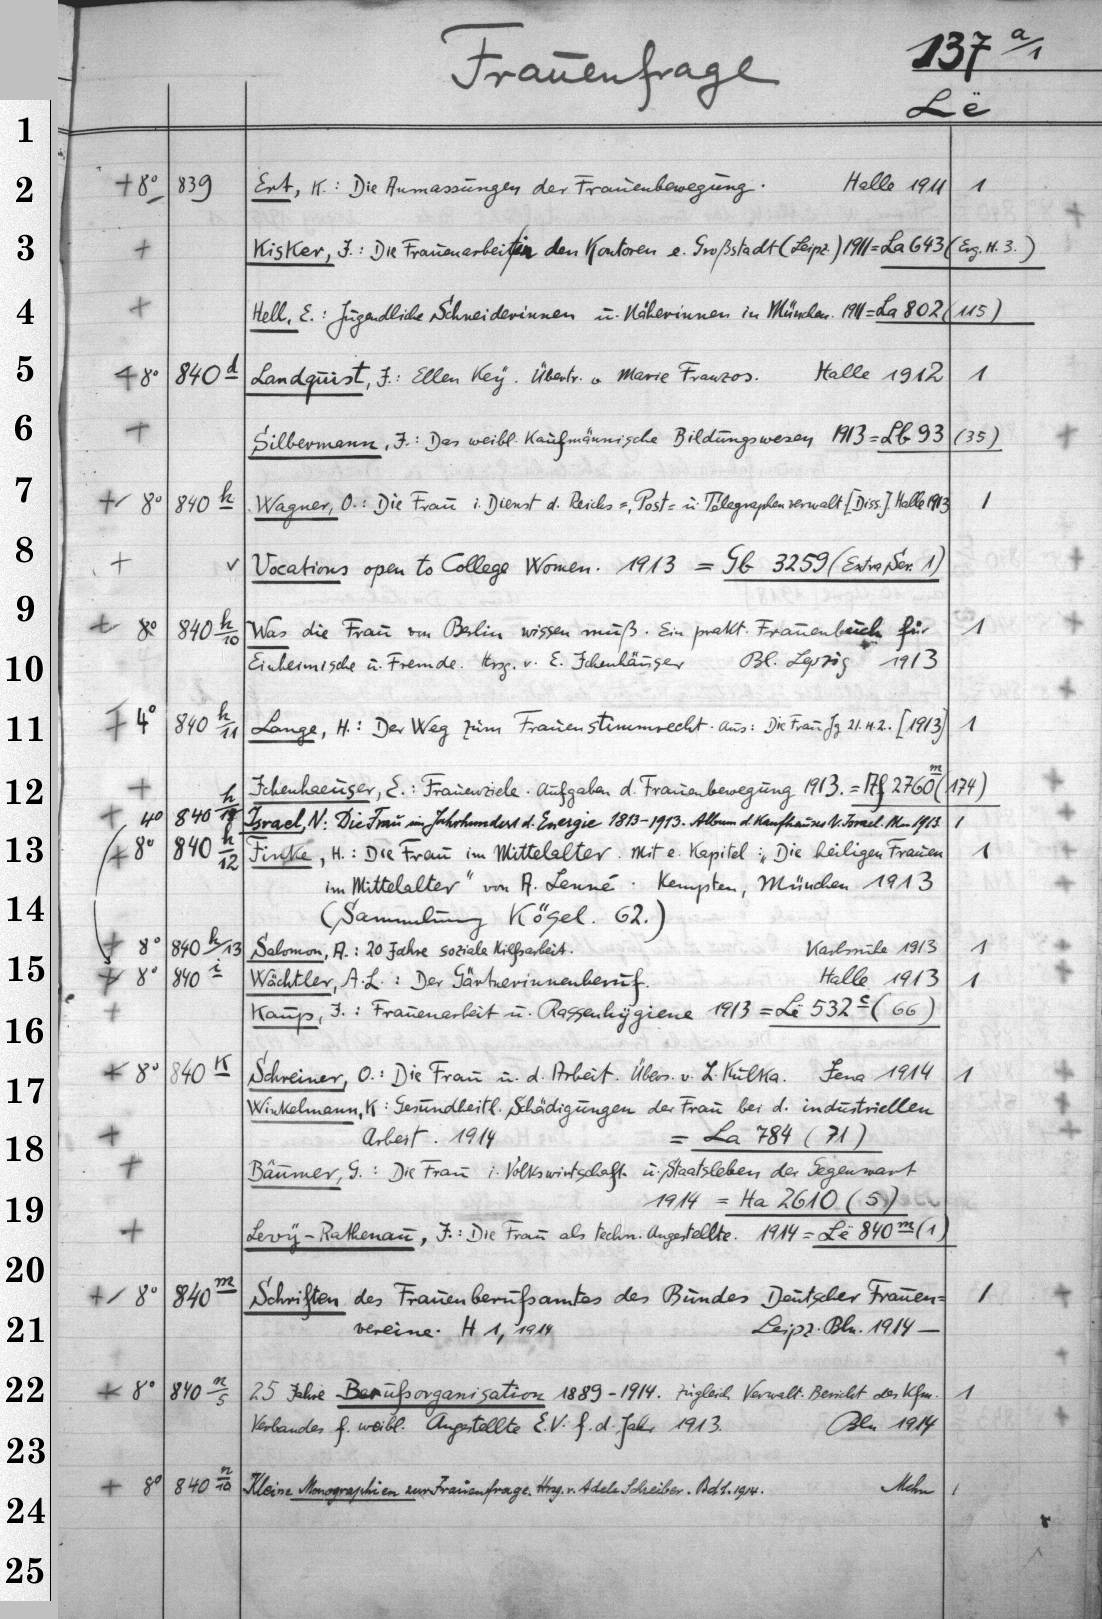 Frauenfrage 137 a/1
Lë
1
2 + 8° 839 Ert, K.: Die Anmassungen der Frauenbewegung. Halle 1911 1
3 + Kisker, J.: Die Frauenarbeit in den Kontoren e. Großstadt (Leipz.) 1911 = La 643 (Erg. H. 3.)
4 + Hell, E.: Jugendliche Schneiderinnen u. Näherinnen in München. 1911 = La 802 (115)
5 + 8° 840 d Landquist, J.: Ellen Key. Übertr. v. Marie Franzos. Halle 1912 1
6 + Silbermann, J.: Das weibl. Kaufmännische Bildungswesen 1913 = Lb 93 (35)
7 + 8° 840 h Wagner, O.: Die Frau i. Dienst d. Reichs=, Post= u. Telegraphenverwalt [Diss.]. Halle 1913 1
8 + v Vocations open to College Women. 1913 = Gb 3259 (Extra Ser. 1)
9 + 8° 840 h/10 Was die Frau von Berlin wissen muß. Ein prakt. Frauenbuch für 1
10 Einheimische u. Fremde. Hrsg. v. E. Ichenhäuser Bl. Lepzig 1913
11 + 4° 840 h/11 Lange, H.: Der Weg zum Frauenstimmrecht. Aus: Die Frau Jg 21. H. 2. [1913] 1
12 + Ichenhaeuser, E.: Frauenziele. Aufgaben d. Frauenbewegung 1913. = Af 2760 m (174)
+ 4° 840 h Israel, N: Die Frau im Jahrhundert d. Energie 1813-1913. Album d. Kaufhauses N. Israel. Bln 1913 1
13 + 8° 840 h/12 Finke, H.: Die Frau im Mittelalter. Mit e. Kapitel: „Die heiligen Frauen 1
im Mittelalter" von A. Lenné. Kempten, München 1913
14 (Sammlung Kösel. 62.)
+ 8° 840 h/13 Salomon, A.: 20 Jahre soziale Hilfsarbeit. Karlsruhe 1913 1
15 + 8° 840 i Wächtler, A. L.: Der Gärtnerinnenberuf. Halle 1913 1
16 + Kaup, J.: Frauenarbeit u. Rassenhygiene 1913 = Lë 532 c (66)
+ 8° 840 K Schreiner, O.: Die Frau u. d. Arbeit. Übers. v. L. Kulka. Jena 1914 1
17 Winkelmann, K: Gesundheitl. Schädigungen der Frau bei d. industriellen
18 + Arbeit. 1914 = La 784 (71)
+ Bäumer, G.: Die Frau i. Volkswirtschaft u. Staatsleben der Gegenwart
19 1914 = Ha 2610 (5)
+ Levy-Rathenau, J.: Die Frau als techn. Angestellte. 1914 = Lë 840 m (1)
20 + 8° 840 m Schriften des Frauenberufsamtes des Bundes Deutscher Frauen= 1
21 vereine. H 1, 1914 Leipz. Bln. 1914 —
22 + 8° 840 n/5 25 Jahre Berufsorganisation 1889-1914. zugleich Verwalt. Bericht des Kfm. 1
Verbandes f. weibl. Angestellte E.V. f. d. Jahr 1913. Bln 1914
23
24 + 8° 840 n/10 Kleine Monographien zur Frauenfrage. Hrsg. v. Adele Schreiber. Bd 1. 1914. Mchn 1
25